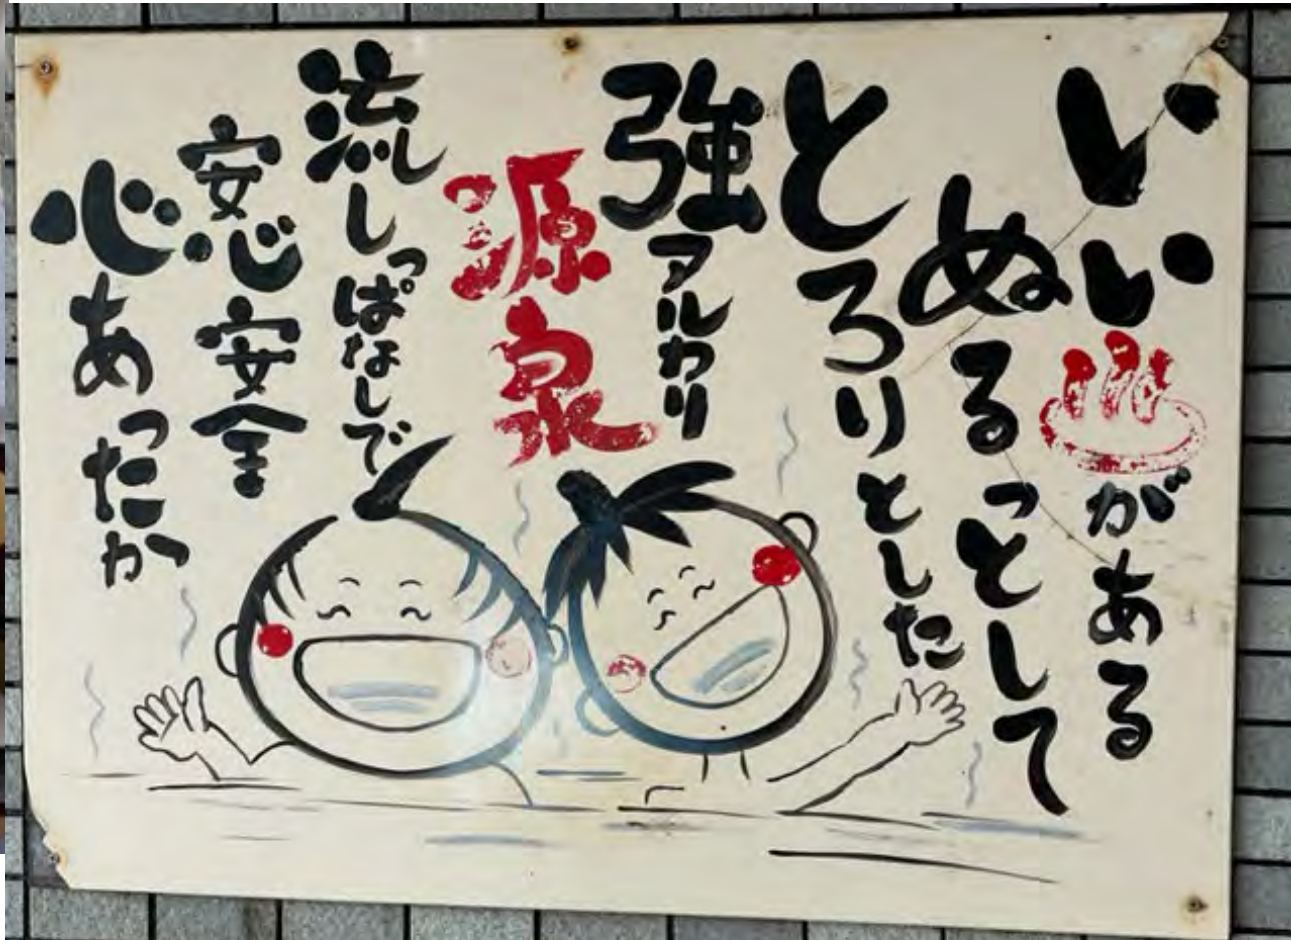 いい♨がある
ぬるっとして
とろりとした
強アルカリ
源泉
流しっぱなしで
安心安全
心あったか